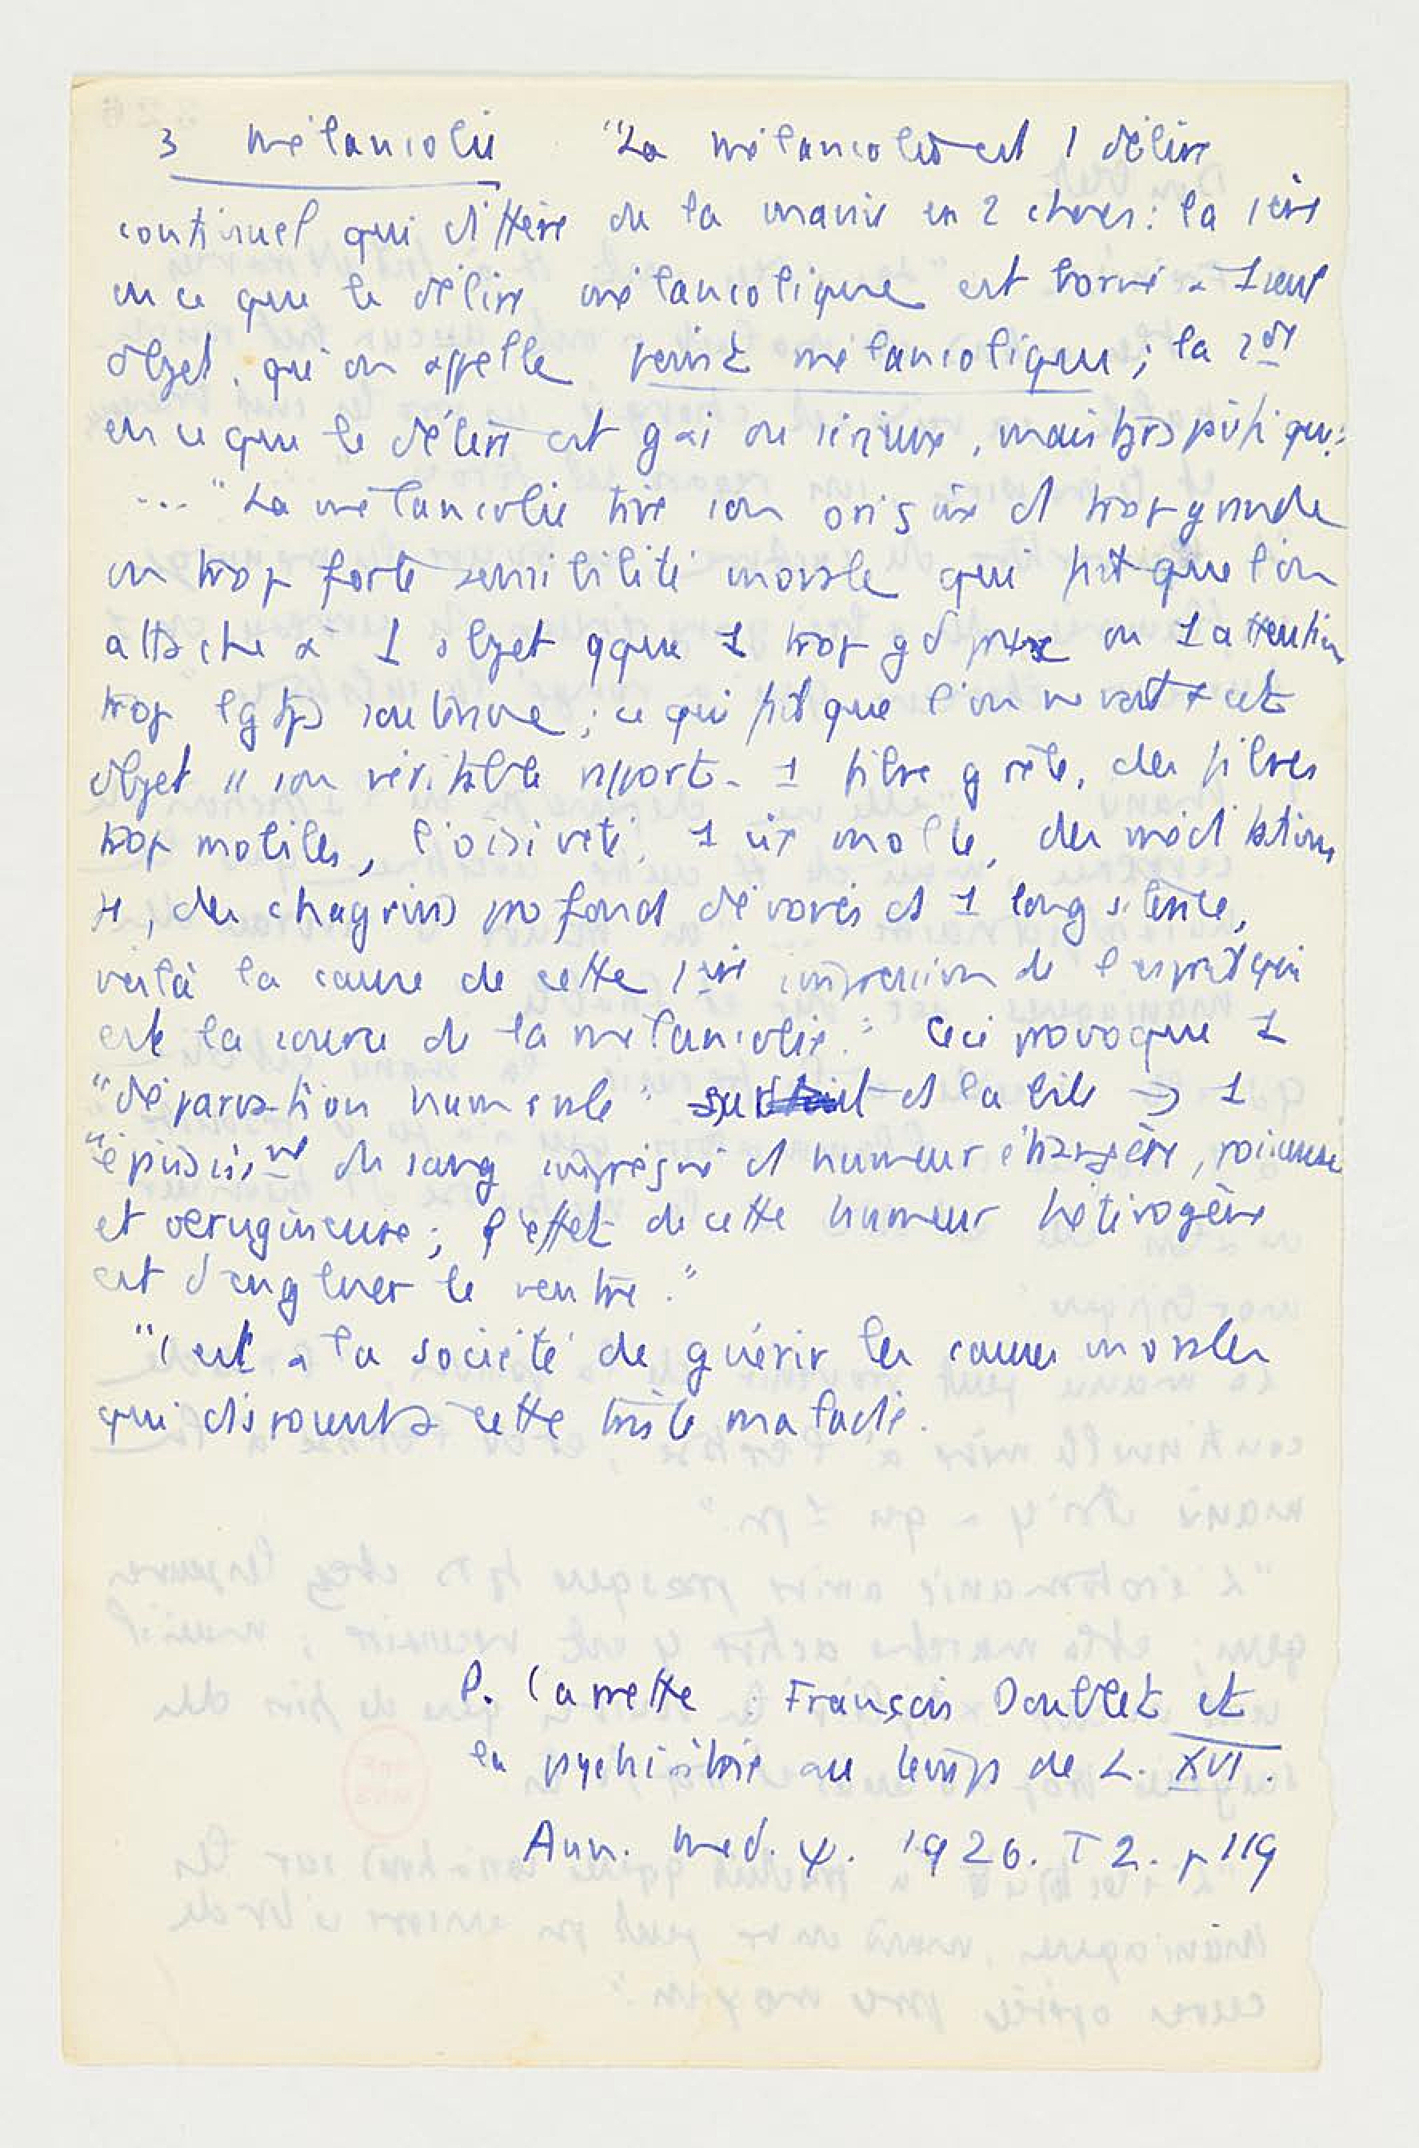 3 mélancolie "La mélancolie est 1 délire
continuel qui diffère de la manie en 2 choses : la 1ère
en ce que le délire mélancolique est borné à 1 seul
objet, qu'on appelle point mélancolique ; la 2de
en ce que le délire est gai ou sérieux, mais tjrs pacifique."
... "La mélancolie tire son origine d trop grande
ou trop forte sensibilité morale qui fait que l'on
attache à 1 objet qque 1 trop gd prix ou 1 attention
trop lgtps soutenue ; ce qui fait que l'on ne voit + cet
objet ss son véritable rapport. 1 fibre grêle, des fibres
trop mobiles, l'oisiveté, 1 vie molle, des méditations
, des chagrins profond dévorés ds 1 long silence,
voilà la cause de cette 1ère impression de l'esprit qui
est la source de la mélancolie." Ceci provoque 1
"dépravation humorale" surtout ds la bile → 1
"épaississ.nt du sang imprégné d humeur étrangère, poisseuse
et verugineuse ; l'effet de cette humeur hétérogène
est d'engluer le ventre."
"C'est à la société de guérir les causes morales
qui dissouent cette triste maladie.
P. Carrette : François Doublet et
la psychiatrie au temps de L. XVI.
Ann. med. ψ. 1926. T 2. p 119